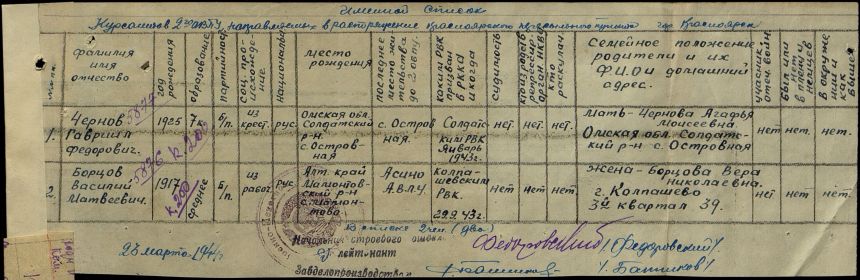 Именной Список
Курсантов 2го АВЛУ, направляемых в распоряжение Красноярского пересыльного пункта гор. Красноярск
№№ п.п.
фамилия имя отчество
год рождения
образование
партийность
соц. происхождение.
национальн.
место рождения
последнее место жительства до 2 АВЛУ.
каким РВК призван в РККА и когда
судимость
кто из родств. репрессир. орган. НКВД
кто раскулач.
Семейное положение, родители и их Ф.И.О и домашний адрес.
участник отеч. войн
был или нет в плену у немцев
в окружении и как вышел
1. Чернов Гавриил Федорович.
1925
7 кл.
б/п.
из крест.
рус.
Омская обл. Солдатский р-н с. Островная
с. Островная.
Солдатским РВК Январь 1943 г.
нет.
нет.
нет.
Мать - Чернова Агафья Моисеевна Омская обл. Солдатский р-н с. Островная
нет
нет.
нет.
5876 К.203
2. Борцов Василий Матвеевич.
1917
среднее
б/п.
из рабоч.
рус.
Алт. край Мамонтовский р-н с. Мамонтово
Асино АВЛУ
Колпашевским РВК. 29.2.43г.
нет
нет
нет.
Жена - Борцова Вера Николаевна. г. Колпашево 3й квартал 39.
нет
нет
нет.
К 200
В списке 2 чел. (два)
Начальник строевого отделен.
лейтенант
Федоровский / Федоровский /
23 марта 194
Завделопроизводством
/ Батников /